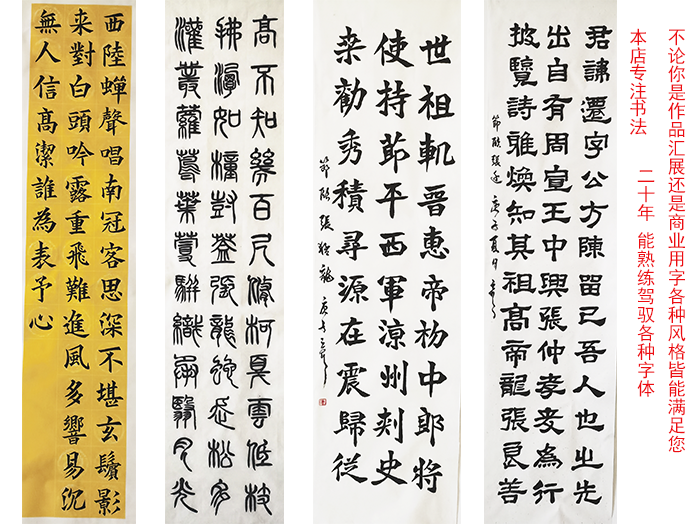 不论你是作品汇展还是商业用字各种风格皆能满足您
本店专注书法 二十年 能熟练驾驭各种字体
君諱遷字公方陳留已吾人也之先
出自有周宣王中興張仲孝友為行
披覽詩雅煥知其祖高帝龍張良善
節臨張遷 庚子夏月
世祖軌晉惠帝初中郎將
使持節平西軍涼州刺史
来勸秀積尋源在震歸從
節臨張猛龍 庚子
高不知幾百尺修柯戛雲低枝
拂潭如幢豎蓋張龍蛇走松多
灌叢蘿蔦葉蔓駢織承翳日月光
西陸蟬聲唱南冠客思深不堪玄鬢影
来對白頭吟露重飛難進風多響易沉
無人信高潔誰為表予心